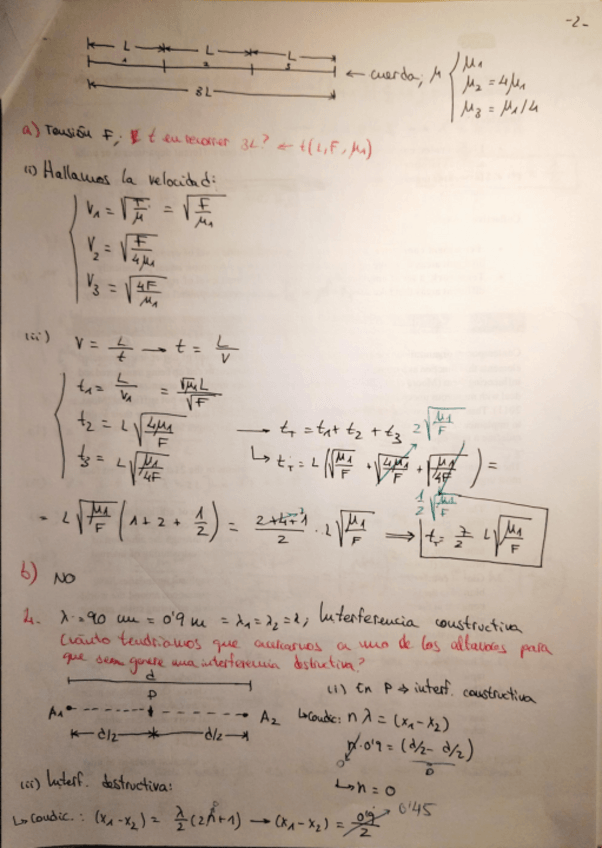 -2-
L L L
1 2 3
← cuerda; μ { μ₁
μ₂ = 4μ₁
μ₃ = μ₁/4
3L
a) Tensión F; t en recorrer 3L? ← t(L, F, μ₁)
(i) Hallamos la velocidad:
V₁ = √(T/μ) = √(F/μ₁)
V₂ = √(F/4μ₁)
V₃ = √(4F/μ₁)
(ii) V = L/t → t = L/V
t₁ = L/V₁ = √μ₁ L/√F
t₂ = L√(4μ₁/F) → t_T = t₁ + t₂ + t₃ 2√(μ₁/F)
t₃ = L√(μ₁/4F) ↳ t_T = L(√(μ₁/F) + √(4μ₁/F) + √(μ₁/4F)) =
1/2 √(μ₁/F)
= L√(μ₁/F) (1 + 2 + 1/2) = (2+4+1)/2 · L√(μ₁/F) ⇒ t_T = 7/2 L√(μ₁/F)
b) NO
λ = 90 cm = 0'9 m = λ₁ = λ₂ = λ; Interferencia constructiva
Cuándo tendríamos que acercarnos a uno de los altavoces para
que se genere una interferencia destructiva?
d
P
A₁ A₂
d/2 d/2
(i) En P ⇒ interf. constructiva
↳ Condic: nλ = (x₁ - x₂)
n · 0'9 = (d/2 - d/2)
0 0
↳ n = 0
(ii) Interf. destructiva:
↳ Condic.: (x₁ - x₂) = λ/2 (2n + 1) → (x₁ - x₂) = 0'9/2 0'45